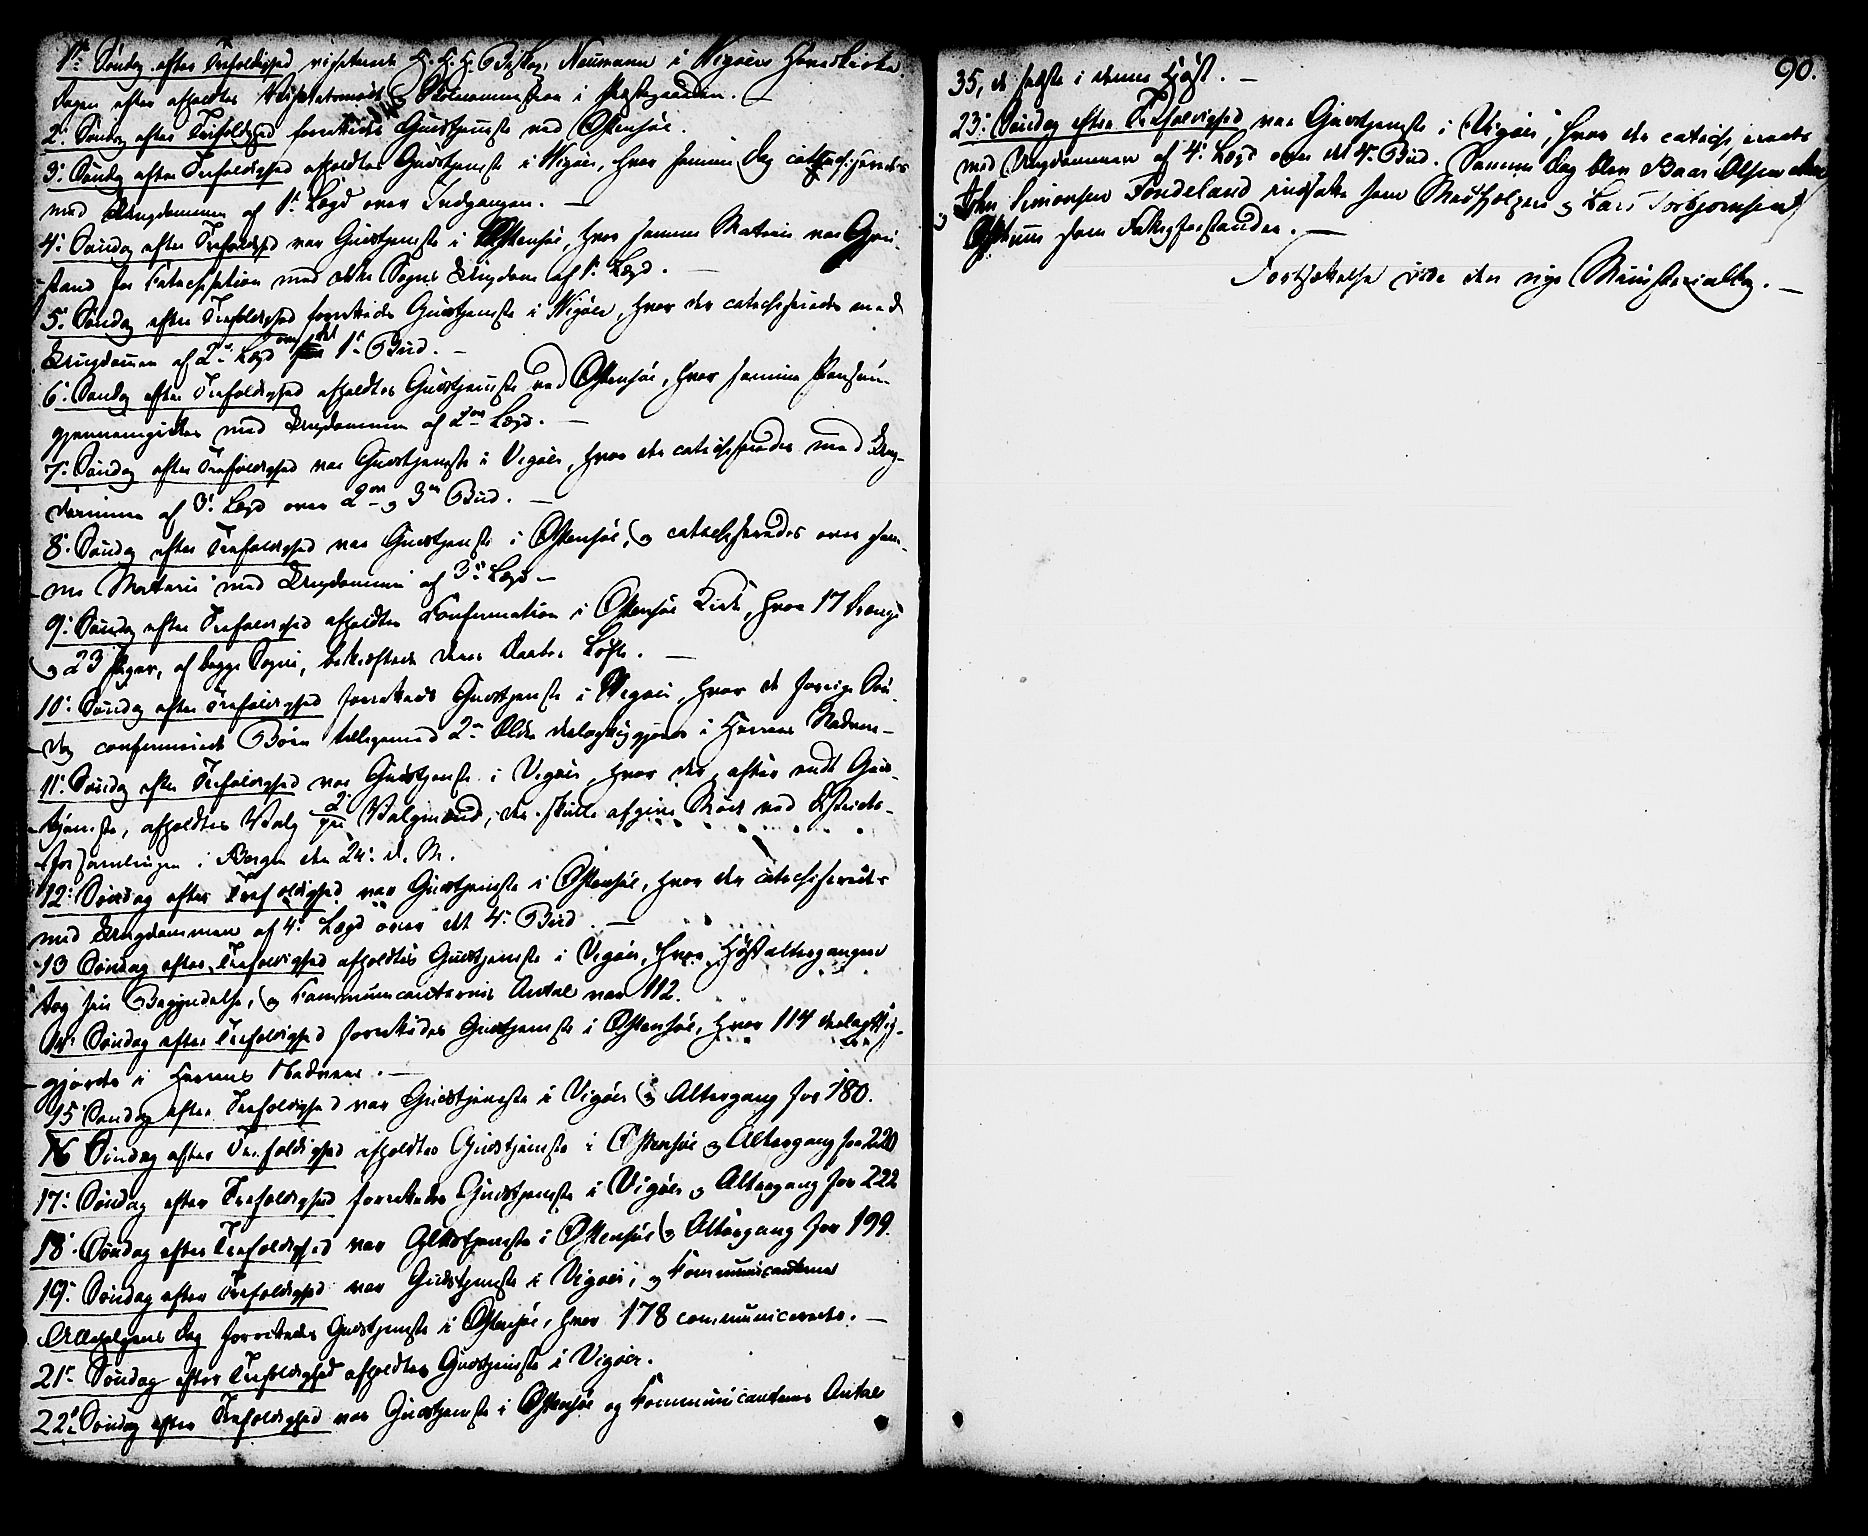 1ste Søndag efter Trefoldighed visiterede H. H. H. Biskop Neumann i Wigøers Hovedkirke.
Dagen efter afholdtes Skoleexamen i Præstegaarden. —
2. Søndag efter Trefoldighed forrettedes Gudstjeneste ved Østensøe.
3. Søndag efter Trefoldighed afholdtes Gudstjeneste i Wigøer, hvor samme Dag catechiseredes
med Ungdommen af 1ste Lægd over Indgangen. —
4. Søndag efter Trefoldighed var Gudstjeneste i Østensøe, hvor samme Materie var Gjen-
stand for Catechisation med dette Sogns Ungdom af 1. Lægd. —
5. Søndag efter Trefoldighed forrettedes Gudstjeneste i Wigøer, hvor der catechiseredes med
Ungdommen af 2det Lægd over det 1ste Bud. —
6. Søndag efter Trefoldighed afholdtes Gudstjeneste ved Østensøe, hvor samme Pensum
gjennemgikkes med Ungdommen af 2det Lægd. —
7. Søndag efter Trefoldighed var Gudstjeneste i Vigøer, hvor der catechiseredes med Ung-
dommen af 3. Lægd over 2det og 3die Bud. —
8. Søndag efter Trefoldighed var Gudstjeneste i Østensøe, og catechiseredes over sam-
me Materie med Ungdommen af 3die Lægd —
9. Søndag efter Trefoldighed afholdtes Confirmation i Østensøe Kirke, hvor 17 Drenge
og 23 Piger, af begge Sogne, bekræftede deres Daabs Løfte. —
10. Søndag efter Trefoldighed forrettedes Gudstjeneste i Wigøer, hvor de forrige Søn-
dag confirmerede Børn tilligemed 2de Ældre delagtiggjordes i Herrens Nadvere —
11. Søndag efter Trefoldighed var Gudstjeneste i Vigøer, hvor der, efter endt Guds-
tjeneste, afholdtes Valg paa 2de Valgmænd, der skulle afgive Møde ved Districts-
forsamlingen i Bergen den 24. d. M.
12. Søndag efter Trefoldighed var Gudstjeneste i Østensøe, hvor der catechiseredes
med Ungdommen af 4. Lægd over det 4. Bud. —
13 Søndag efter Trefoldighed afholdtes Gudstjeneste i Vigøer, hvor Høstaltergangen
tog sin Begyndelse, og Communicanternes Antal var 112.
14. Søndag efter Trefoldighed forrettedes Gudstjeneste i Østensøe, hvor 114 delagtig-
gjordes i Herrens Nadvere. —
15 Søndag efter Trefoldighed var Gudstjeneste i Vigøer og Altergang for 180.
16 Søndag efter Trefoldighed afholdtes Gudstjeneste i Østensøe og Altergang for 220
17. Søndag efter Trefoldighed forrettedes Gudstjeneste i Vigøer og Altergang for 222
18. Søndag efter Trefoldighed var Gudstjeneste i Østensøe og Altergang for 199.
19. Søndag efter Trefoldighed var Gudstjeneste i Vigøer, og Communicanterne
Allehelgens Dag forrettedes Gudstjeneste i Østensøe, hvor 178 communicerede. —
21. Søndag efter Trefoldighed afholdtes Gudstjeneste i Vigøer.
22. Søndag efter Trefoldighed var Gudstjeneste i Østensøe og Communicanternes Antal
90.
35, de sidste i denne Høst. —
23. Søndag efter Trefoldighed var Gudstjeneste i Vigøer, hvor der catechiseredes
med Ungdommen af 4. Lægd over det 4. Bud. Samme Dag blev Baar Olsen
og John Simonsen Tondeland indsatte som Medhjelpere og Lars Torbjørnsen
som Fattigforstander. —
Fortsættelse vide den nye Ministerialbog. —